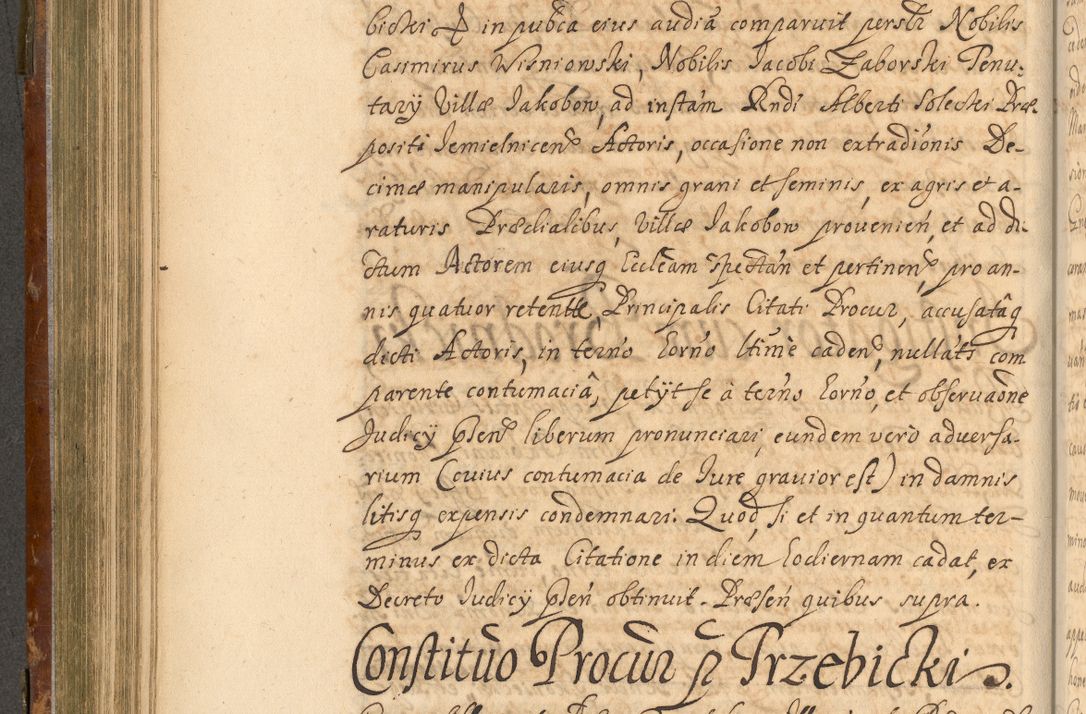 bicki & in pubca eius audiã comparuit perslr Nobilis
Casimirus Wiśniowski, Nobilis Jacobi Zaborski Tenu-
tarÿ Villæ Jakobow, ad instam Rndi Alberti Solecki Præ
positi Jemielnicen Actoris, occasione non extradionis De-
cimæ manipularis, omnis grani et seminis, ex agris et a-
raturis Prædialibus, villæ Jakobow prouenień, et ad di-
ctum Actorem eiusq Eccleam spectań et pertinen, pro an-
nis quatuor retentæ, Principalis Citati Procur, accusatâq
dicti Actoris, in terno hor̃no ltime caden, nullats com
parente contumaciâ, petÿt se à terno horno, et obseruaone
Judicÿ pñen liberum pronunciari, eundem verò aduersa-
rium (cuius contumacia de Jure grauior est) in damnis
litisq expensis condemnari. Quod, si et in quantum ter-
minus ex dicta Citatione in diem hodiernam cadat, ex
Decreto Judicÿ pñen obtinuit. Præseń quibus supra.
Constituõ Procur p Trzebicki.